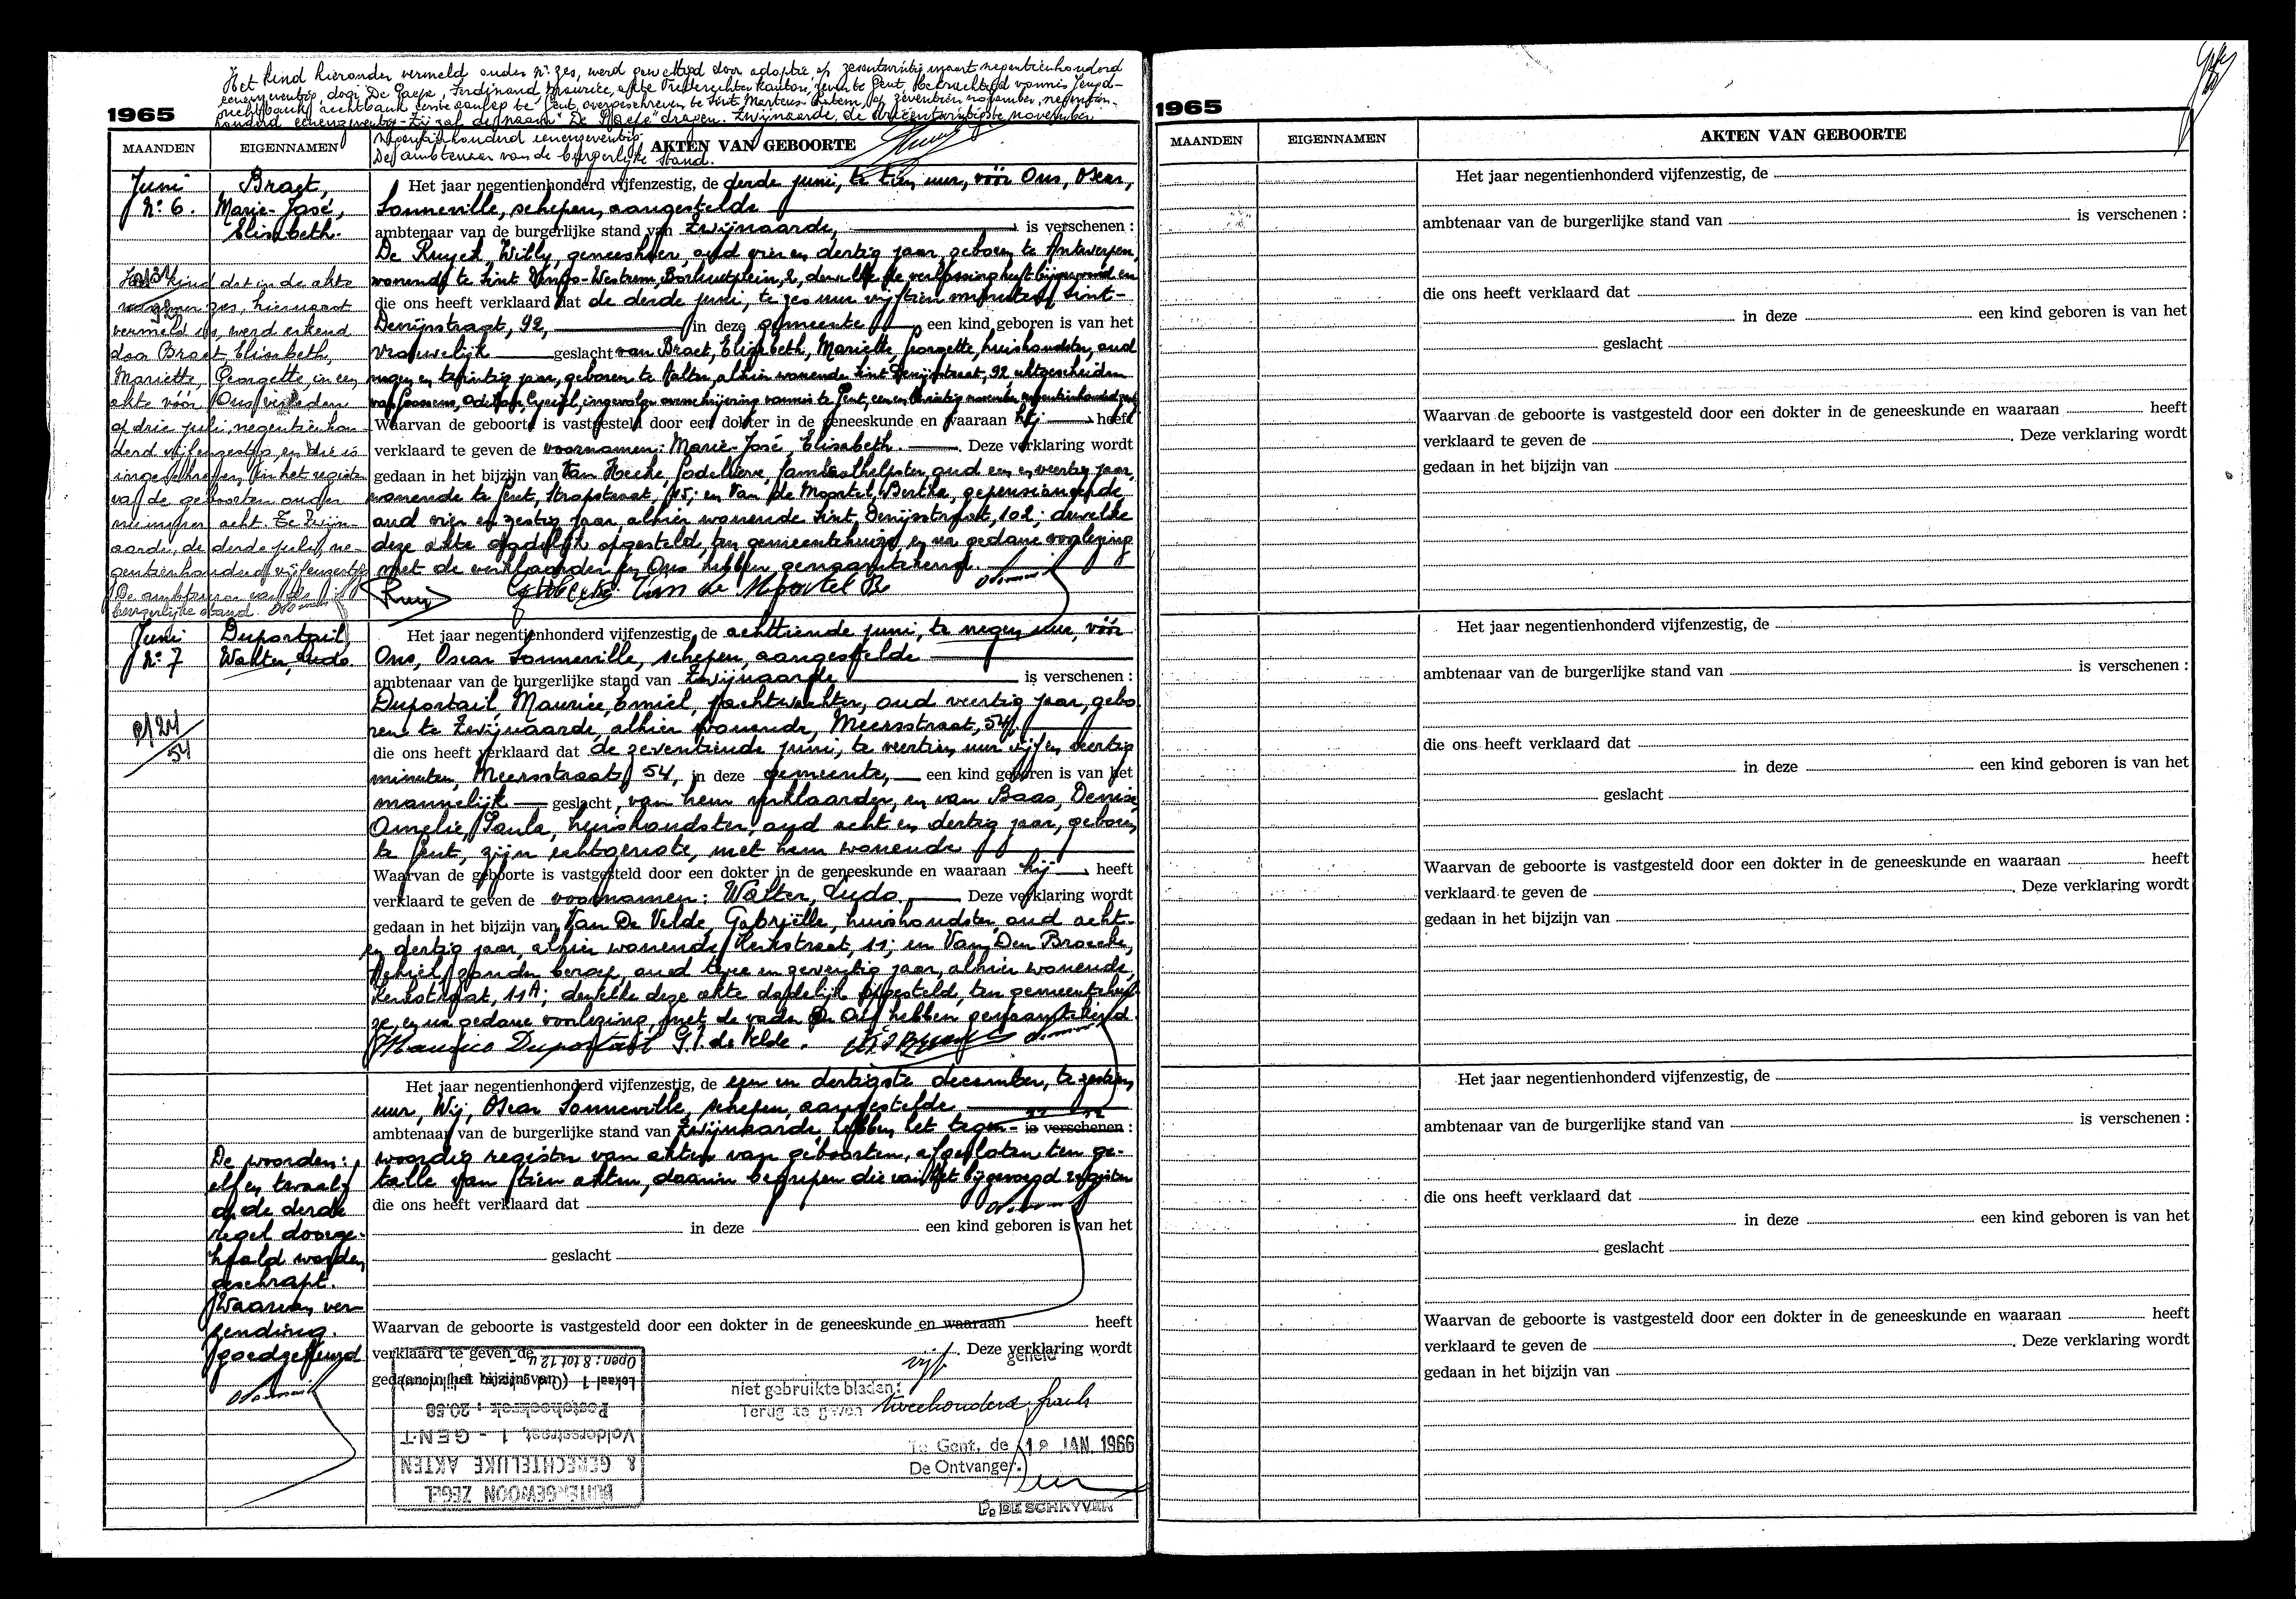 Het kind hieronder vermeld onder nr zes, werd gewettigd door adoptie op zesentwintig maart negentienhonderd
eenenzeventig, door De Paepe, Ferdinand, Maurice, akte Vrederechter kanton, Zevende Gent, bekrachtigd vonnis Jeugd-
rechtbank, rechtbank eerste aanleg te Gent, overgeschreven te Sint Martens Latem, op zeventien november negentien-
honderd eenenzeventig - Zij zal de naam "De Paepe" dragen. Zwijnaarde, de drieëntwintigste november
negentienhonderd eenenzeventig.
De ambtenaar van de burgerlijke stand.
1965
MAANDEN
EIGENNAMEN
AKTEN VAN GEBOORTE
Juni
Nr 6.
Braet,
Marie-José,
Elisabeth.
Het kind dat in de akte
nummer zes, hiernaast
vermeld is, werd erkend
door Braet, Elisabeth,
Mariette, Georgette, in een
akte vóór Ons verleden
op drie juli, negentienhon-
derd vijfenzestig, en die is
ingeschreven in het register
van de geboorten onder
nummer acht. Te Zwijn-
aarde, de derde juli, ne-
gentienhonderd vijfenzestig
De ambtenaar van de
burgerlijke stand.
Het jaar negentienhonderd vijfenzestig, de derde juni, te tien uur, vóór Ons, Oscar,
Sonneville, schepen, aangestelde
ambtenaar van de burgerlijke stand van Zwijnaarde, is verschenen :
De Ruyck, Willy, geneesheer, oud vier en dertig jaar, geboren te Antwerpen,
wonende te Sint Denijs-Westrem, Borluutplein, 2, dewelke de verlossing heeft bijgewoond en
die ons heeft verklaard dat de derde juni, te zes uur vijftien minuten, Sint-
Denijsstraat, 92, in deze gemeente, een kind geboren is van het
vrouwelijk geslacht van Braet, Elisabeth, Mariette, Georgette, huishoudster, oud
negen en twintig jaar, geboren te Aalter, alhier wonende Sint Denijsstraat, 92, uitgescheiden
van Goossens, Cyriel, ingevolge overschrijving vonnis te Gent, een en dertig november negentienhonderd
Waarvan de geboorte is vastgesteld door een dokter in de geneeskunde en waaraan hij heeft
verklaard te geven de voornamen: Marie-José, Elisabeth. Deze verklaring wordt
gedaan in het bijzijn van Van Hecke, Godelieve, familiehelpster, oud een en veertig jaar,
wonende te Gent, Stropstraat, 15; en Van de Moortel, Bertha, gepensioneerde
oud vier en zestig jaar, alhier wonende Sint Denijsstraat, 102; dewelke
deze akte dadelijk opgesteld, ten gemeentehuize, en na gedane voorlezing
met de verklaarder en Ons hebben genaamtekend.
Van de Moortel B
Juni
Nr 7
Duportail,
Walter, Ludo.
2/24
54
Het jaar negentienhonderd vijfenzestig, de achttiende juni, te negen uur, vóór
Ons, Oscar Sonneville, schepen, aangestelde
ambtenaar van de burgerlijke stand van Zwijnaarde is verschenen :
Duportail, Maurice, Emiel, nachtwachter, oud veertig jaar, gebo
ren te Zwijnaarde, alhier wonende, Meersstraat, 54,
die ons heeft verklaard dat de zeventiende juni, te veertien uur vijf en veertig
minuten, Meersstraat, 54, in deze gemeente, een kind geboren is van het
mannelijk geslacht, van hem verklaarder, en van Baas, Denise,
Amelie, Paula, huishoudster, oud acht en dertig jaar, geboren
te Gent, zijn echtgenote, met hem wonende
Waarvan de geboorte is vastgesteld door een dokter in de geneeskunde en waaraan hij heeft
verklaard te geven de voornamen: Walter, Ludo, Deze verklaring wordt
gedaan in het bijzijn van Van De Velde, Gabriëlle, huishoudster, oud acht-
en dertig jaar, alhier wonende Kerkstraat, 11; en Van Den Broecke,
zonder beroep, oud twee en zeventig jaar, alhier wonende,
Kerkstraat, 11A; dewelke deze akte dadelijk opgesteld, ten gemeentehui-
ze, en na gedane voorlezing, met de vader en Ons hebben genaamtekend.
Maurice Duportail G. V. de Velde.
De woorden:
elf en twaalf
op de derde
regel doorge-
haald worden
geschrapt.
Waarvan ver-
zending.
goedgekeurd
Het jaar negentienhonderd vijfenzestig, de een en dertigste december, te zestien
uur, Wij, Oscar Sonneville, schepen, aangestelde
ambtenaar van de burgerlijke stand van Zwijnaarde, hebben het tegen- is verschenen :
woordig register van akten van geboorten, afgesloten ten ge-
talle van tien akten, daarin begrepen die van het bijgevoegd register
die ons heeft verklaard dat
in deze een kind geboren is van het
geslacht
Waarvan de geboorte is vastgesteld door een dokter in de geneeskunde en waaraan heeft
verklaard te geven de Deze verklaring wordt
gedaan in het bijzijn van
BUITENGEWOON ZEGEL
& GERECHTELIJKE AKTEN
Voldersstraat, 1 - GENT
Postcheckrek : 20.58
Lokaal 1
Open : 8 tot 12 u
vijf
niet gebruikte bladen :
Terug te geven tweehonderd frank
Te Gent, de 18 JAN 1966
De Ontvanger.
P. DE SCHRYVER
1965
MAANDEN
EIGENNAMEN
AKTEN VAN GEBOORTE
Het jaar negentienhonderd vijfenzestig, de
ambtenaar van de burgerlijke stand van is verschenen :
die ons heeft verklaard dat
in deze een kind geboren is van het
geslacht
Waarvan de geboorte is vastgesteld door een dokter in de geneeskunde en waaraan heeft
verklaard te geven de . Deze verklaring wordt
gedaan in het bijzijn van
Het jaar negentienhonderd vijfenzestig, de
ambtenaar van de burgerlijke stand van is verschenen :
die ons heeft verklaard dat
in deze een kind geboren is van het
geslacht
Waarvan de geboorte is vastgesteld door een dokter in de geneeskunde en waaraan heeft
verklaard te geven de . Deze verklaring wordt
gedaan in het bijzijn van
Het jaar negentienhonderd vijfenzestig, de
ambtenaar van de burgerlijke stand van is verschenen :
die ons heeft verklaard dat
in deze een kind geboren is van het
geslacht
Waarvan de geboorte is vastgesteld door een dokter in de geneeskunde en waaraan heeft
verklaard te geven de . Deze verklaring wordt
gedaan in het bijzijn van